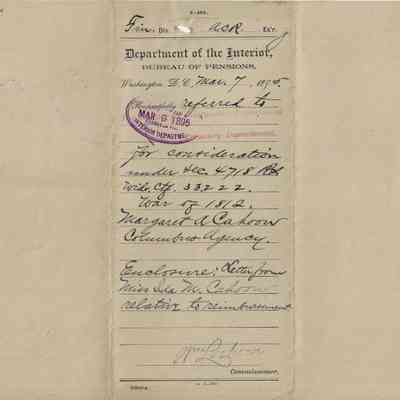 Fin. Div. ACR. Ex'r.
Department of the Interior,
BUREAU OF PENSIONS,
Washington, D.C., Mar. 7, 1895.
Respectfully referred to
MAR 8 1895
INTERIOR DEPARTME
for consideration
under sec. 4718 RS
Wid. Ctf. 33222.
War of 1812.
Margaret A Cahoon
Columbus Agency.
Enclosure; Letter from
Miss Ida M. Cahoon
relative to reimbursement
Commissioner.